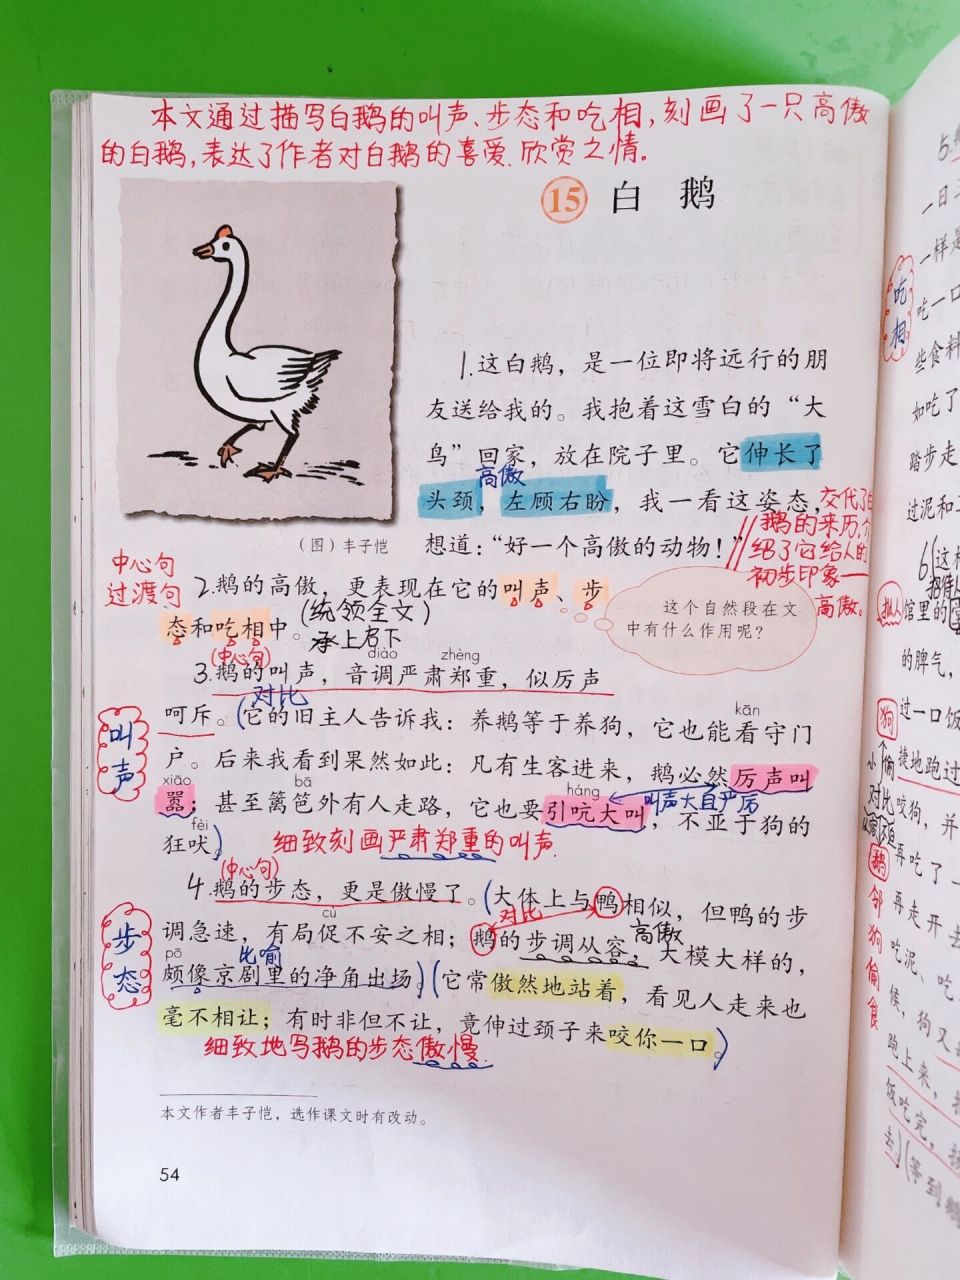 本文通过描写白鹅的叫声、步态和吃相,刻画了一只高傲
的白鹅,表达了作者对白鹅的喜爱、欣赏之情。
15 白 鹅
1.这白鹅，是一位即将远行的朋
友送给我的。我抱着这雪白的“大
鸟”回家，放在院子里。它伸长了
高傲
头颈，左顾右盼，我一看这姿态，
想道：“好一个高傲的动物！”
交代了白
鹅的来历,介
绍了它给人的
初步印象—
高傲。
（图）丰子恺
中心句
过渡句
2.鹅的高傲，更表现在它的叫声、步
态和吃相中。
(统领全文)
承上启下
这个自然段在文
中有什么作用呢？
(中心句)
diào zhèng
3.鹅的叫声，音调严肃郑重，似厉声
对比
kān
呵斥。(它的旧主人告诉我：养鹅等于养狗，它也能看守门
叫声
户。后来我看到果然如此：凡有生客进来，鹅必然厉声叫
xiāo bā háng
叫声大且严厉
嚣；甚至篱笆外有人走路，它也要引吭大叫，不亚于狗的
fèi
狂吠。)
细致刻画严肃郑重的叫声.
(中心句)
4.鹅的步态，更是傲慢了。(大体上与鸭相似，但鸭的步
cù
对比
高傲
调急速，有局促不安之相；鹅的步调从容，大模大样的，
步态
pō
比喻
颇像京剧里的净角出场。)(它常傲然地站着，看见人走来也
毫不相让；有时非但不让，竟伸过颈子来咬你一口。)
细致地写鹅的步态傲慢.
本文作者丰子恺，选作课文时有改动。
54
5.
一日三
一样是
吃相
吃一口
些食料
如吃了
踏步走
过泥和
6.(这样
拟人
馆里的
的脾气，
狗
过一口饭
捷地跑过
对比
咬狗，并
鹅
再吃了一
再走开去
邻狗偷食
吃泥、吃
候，狗又
跑上来，
饭吃完，
去)(等到